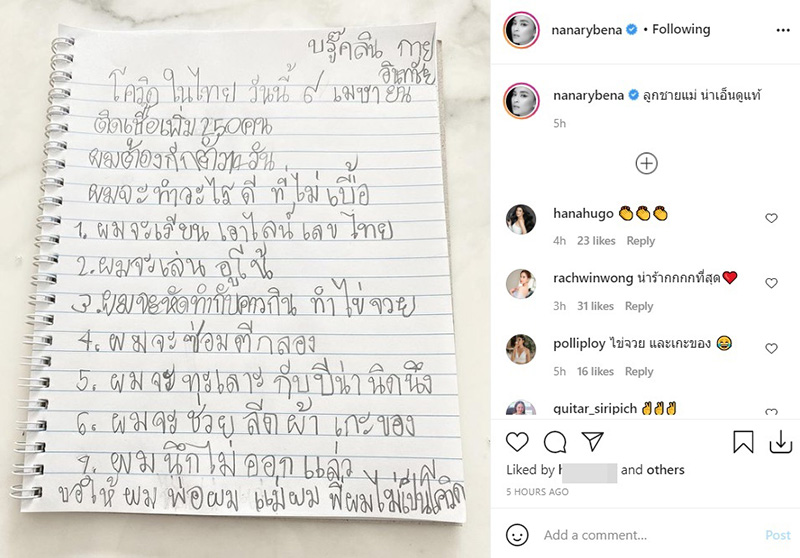 บรุ๊คลิน กาย
อินทวัย
โควิด ในไทย วันนี้ ๙ เมษายน
ติดเชื้อเพิ่ม 250 คน
ผมต้องกักตัว 14 วัน
ผมจะ ทำวะไร ดี ที่ ไม่ เบื้อ
1. ผมจะเรียน เอาไลน์ เลข ไทย
2. ผมจะเล่น อูโน้
3. ผมจะหัดทำกับคาวกิน ทำ ไข่ จวย
4. ผมจะ ซ่อม ตีกลอง
5. ผมจะ ทะเลาะ กับ ปีน่า นิดนึ่ง
6. ผมจะ ช่วยู ลีด ผ้า เกะ ของ
7. ผมนึกไม่ ออก แล่ว
ขอให้ ผม พ่อผม แม่ผม พี่ผมไม่เป็นโควิด
nanarybena • Following
nanarybena ลูกชายแม่ น่าเอ็นดูแท้
5h
hanahugo 👏👏👏
4h 23 likes Reply
rachwinwong น่าร้ากกกกที่สุด❤️
3h 31 likes Reply
polliploy ไข่จวย และเกะของ 😂
5h 16 likes Reply
guitar_siripich ✌️✌️✌️
Liked by h and others
5 HOURS AGO
Add a comment...
Post